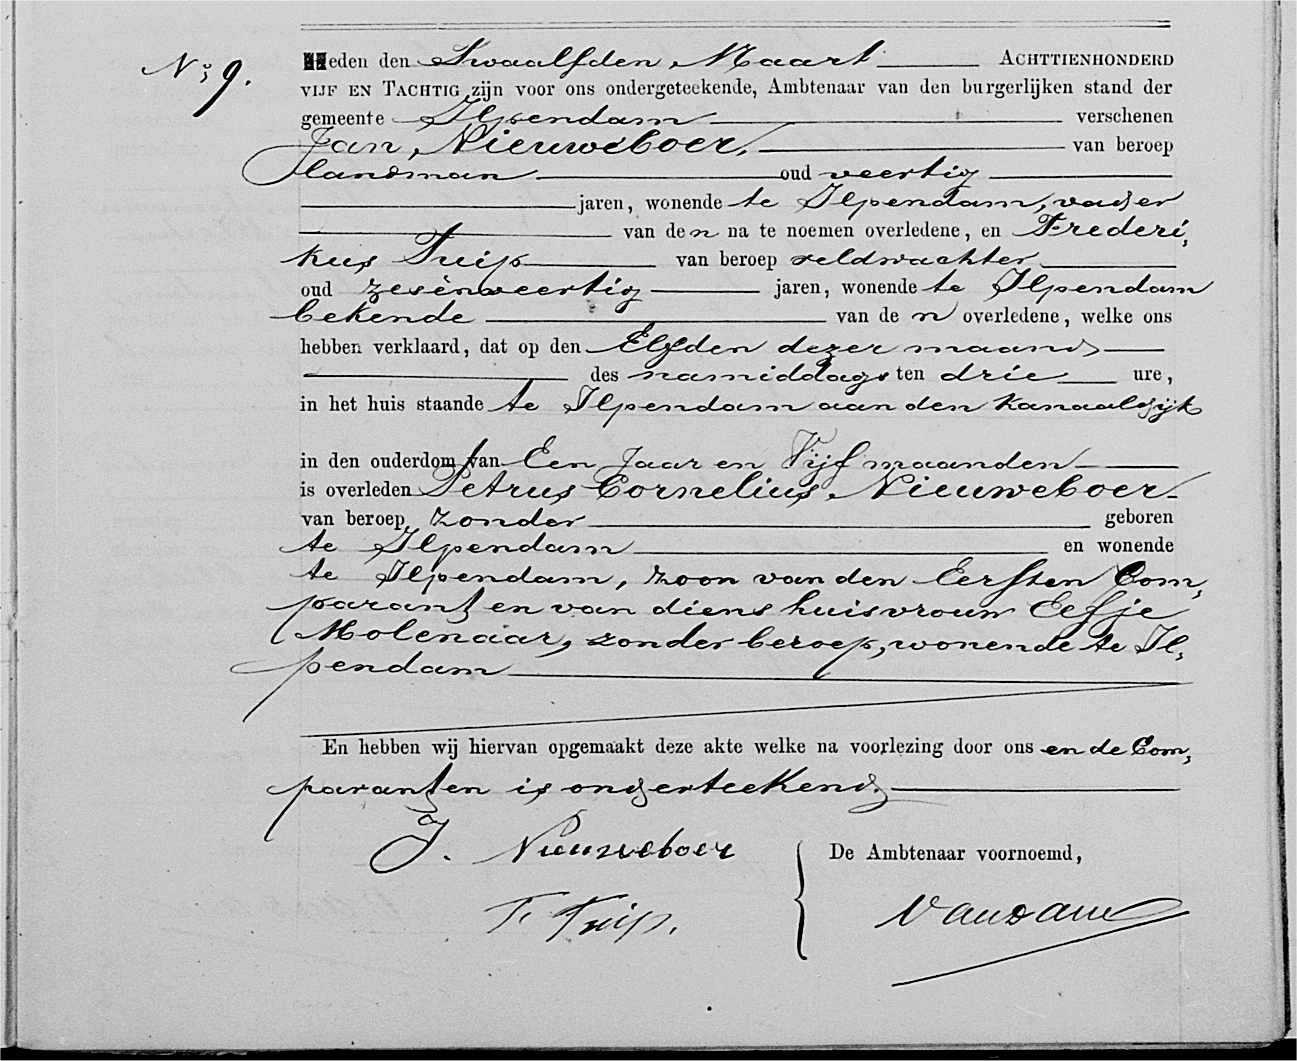 No 9.
Heden den Twaalfden Maart ACHTTIENHONDERD
VIJF EN TACHTIG zijn voor ons ondergeteekende, Ambtenaar van den burgerlijken stand der
gemeente Ilpendam verschenen
Jan Nieuweboer, van beroep
Landman oud veertig
jaren, wonende te Ilpendam, vader
van den na te noemen overledene, en Frederi„
kus Tuip van beroep veldwachter
oud zesënveertig jaren, wonende te Ilpendam
bekende van den overledene, welke ons
hebben verklaard, dat op den Elfden dezer maand
des namiddags ten drie ure,
in het huis staande te Ilpendam aan den Kanaaldijk
in den ouderdom van Een Jaar en Vijf maanden
is overleden Petrus Cornelius Nieuweboer
van beroep zonder geboren
te Ilpendam en wonende
te Ilpendam, zoon van den Eersten Com„
parant en van diens huisvrouw Eefje
Molenaar, zonder beroep, wonende te Il„
pendam
En hebben wij hiervan opgemaakt deze akte welke na voorlezing door ons en de Com„
paranten is onderteekend,
J. Nieuweboer
De Ambtenaar voornoemd,
F. Tuip.
VanDam